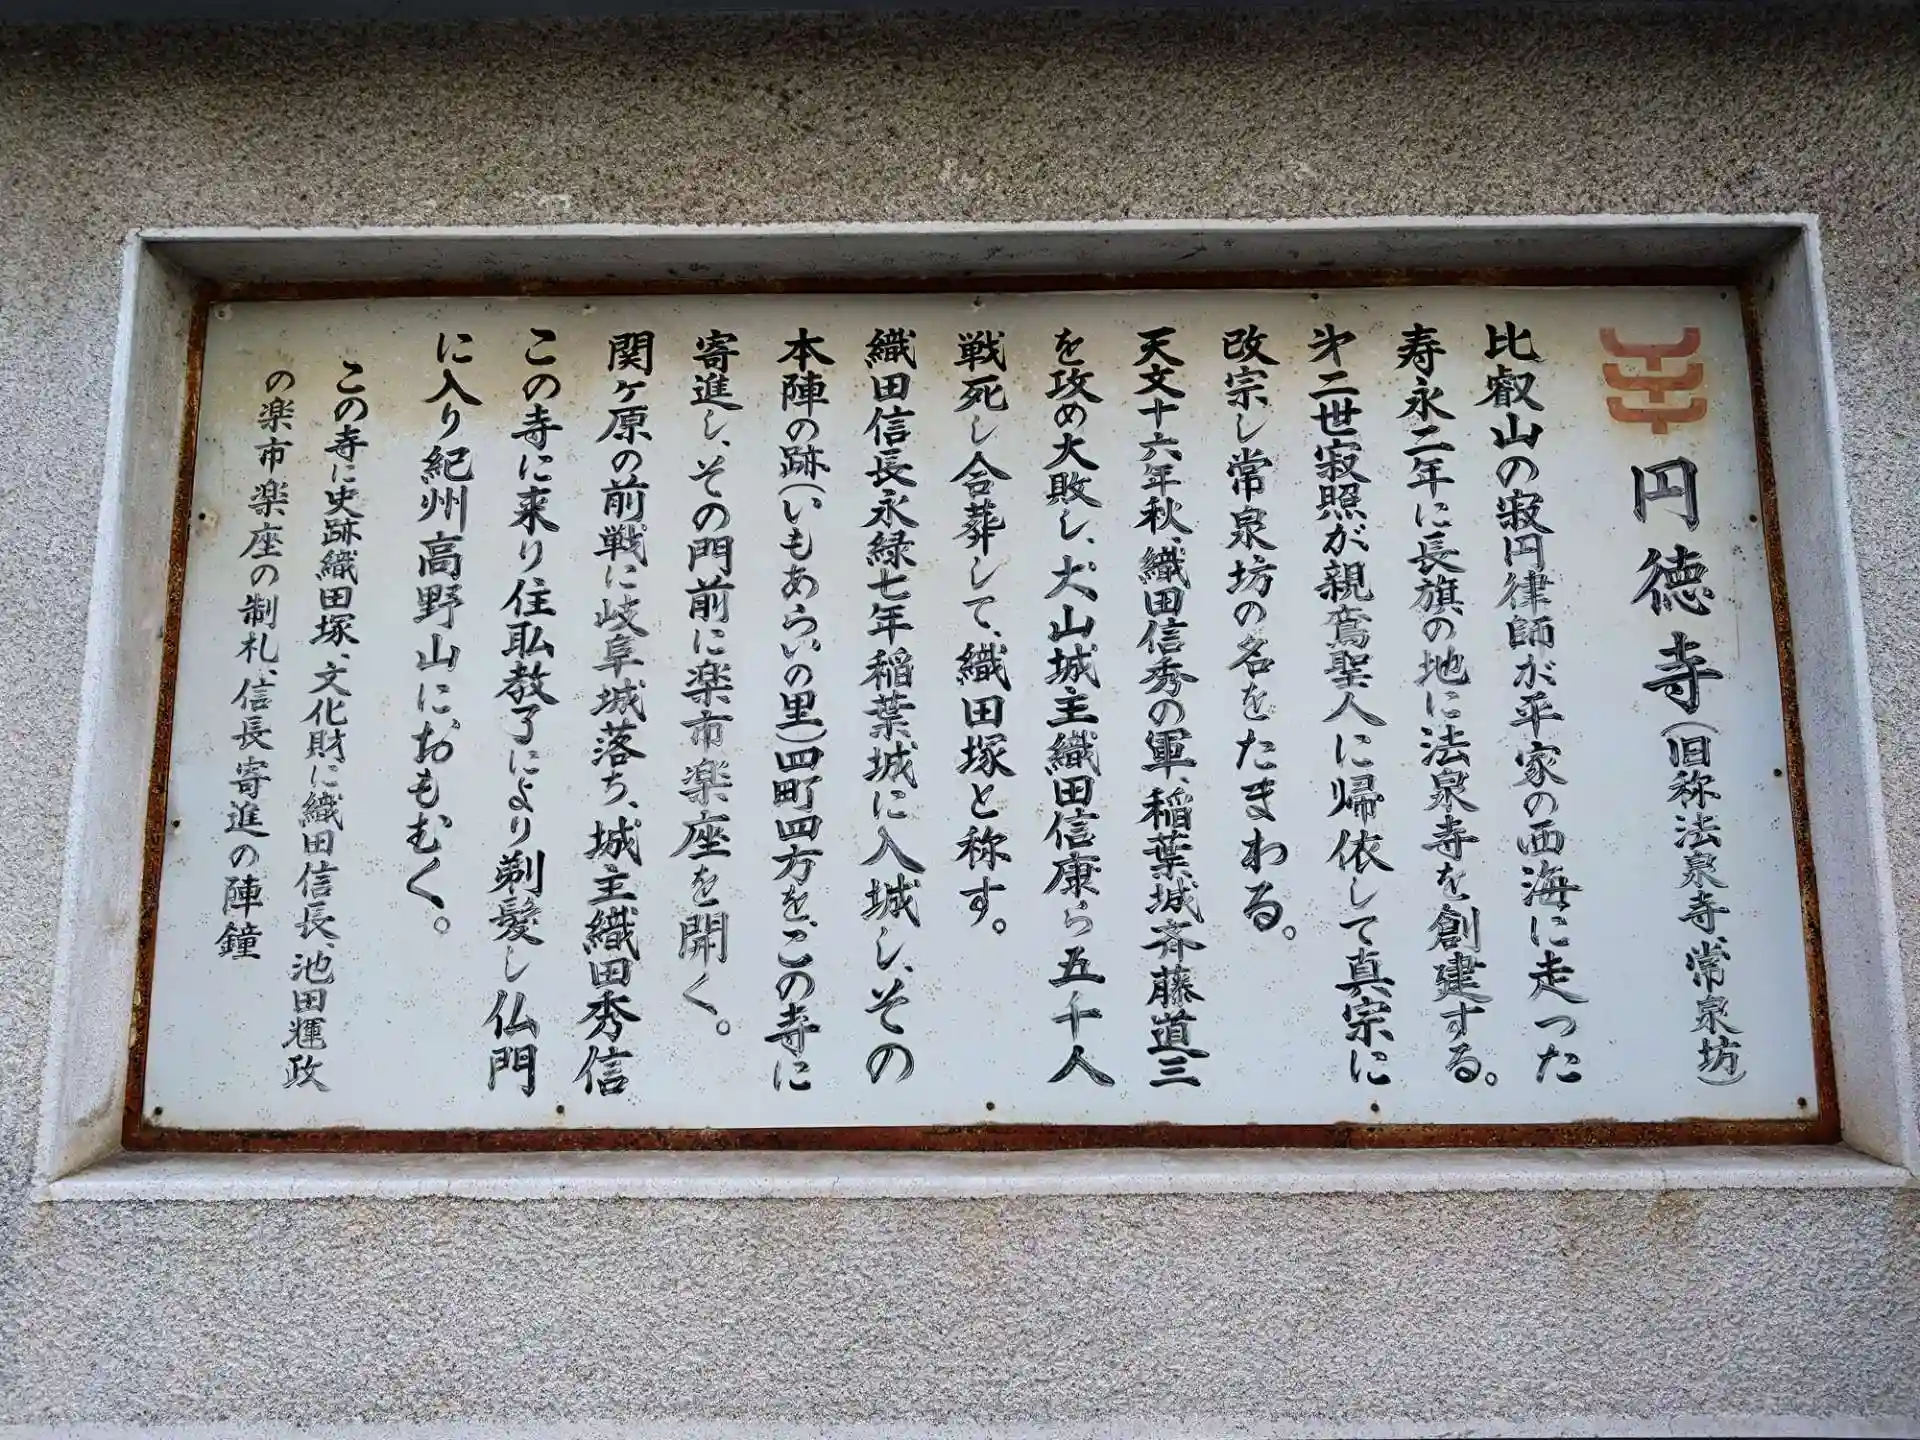 円徳寺(旧称法泉寺、常泉坊)
比叡山の寂円律師が平家の西海に走った
寿永二年に長旗の地に法泉寺を創建する。
㐧二世寂照が親鸞聖人に帰依して真宗に
改宗し常泉坊の名をたまわる。
天文十六年秋、織田信秀の軍、稲葉城斉藤道三
を攻め大敗し、犬山城主織田信康ら五千人
戦死し合葬して、織田塚と称す。
織田信長永緑七年稲葉城に入城し、その
本陣の跡(いもあらいの里)四町四方を、この寺に
寄進し、その門前に楽市楽座を開く。
関ヶ原の前戦に岐阜城落ち、城主織田秀信
この寺に来り住職教了により剃髪し仏門
に入り紀州高野山に、おもむく。
この寺に史跡織田塚、文化財に織田信長、池田輝政
の楽市楽座の制札、信長寄進の陣鐘